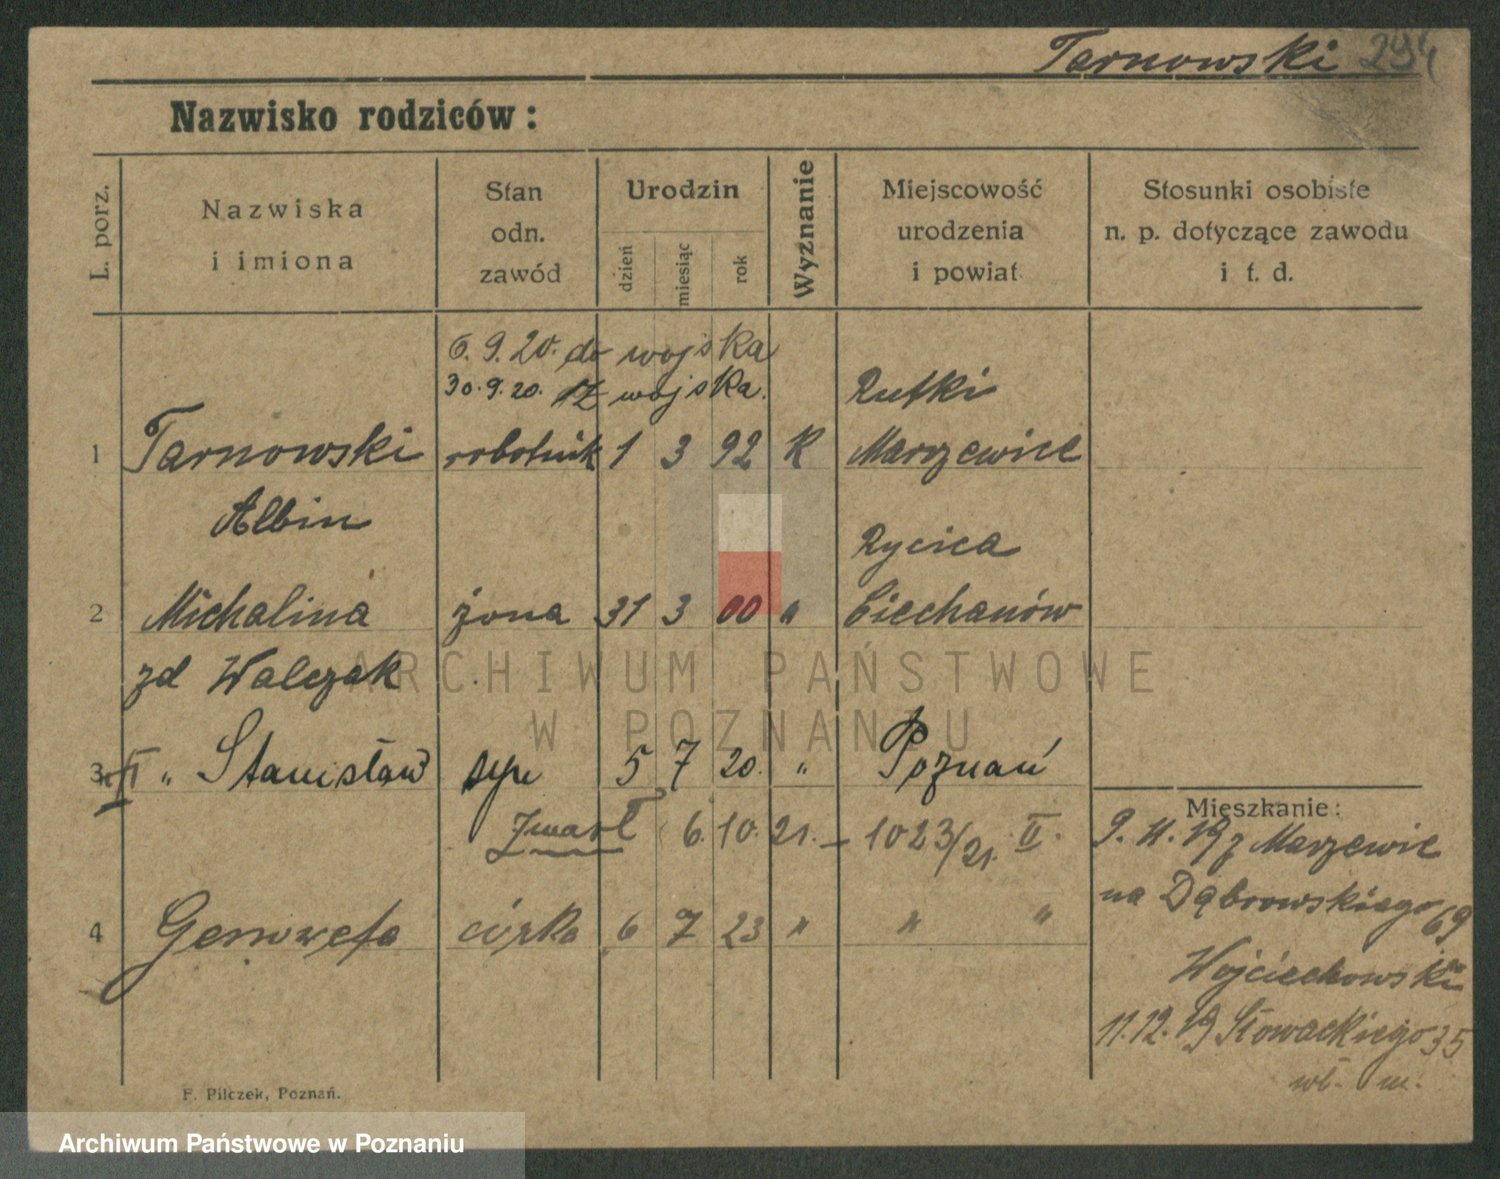 Tarnowski 294
Nazwisko rodziców:
L. porz.
Nazwiska
i imiona
Stan
odn.
zawód
Urodzin
dzień
miesiąc
rok
Wyznanie
Miejscowość
urodzenia
i powiat
Stosunki osobiste
n. p. dotyczące zawodu
i t. d.
6. 9. 20. do wojska
30. 9. 20. z wojska.
Rutki
1 Tarnowski robotnik 1 3 92 K Marzewice
Albin
Rycica
2 Michalina żona 31 3 00 " Ciechanów
zd Walczak
ARCHIWUM PAŃSTWOWE
W POZNANIU
3 II " Stanisław syn 5 7 20. " Poznań
Zmarł 6. 10. 21. – 1023/21. II.
4 Genowefa córka 6 7 23 " " "
Mieszkanie:
9. 11. 19 z Marzewic
na Dąbrowskiego 69
Wojciechowski
11. 12. 19 Słowackiego 35
wł. m.
F. Pilczek, Poznań.
Archiwum Państwowe w Poznaniu